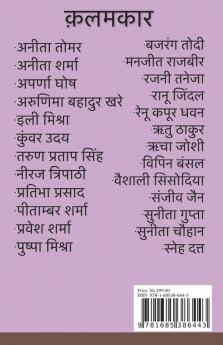 क़लमकार
·अनीता तोमर
·अनीता शर्मा
·अपर्णा घोष
·अरुणिमा बहादुर खरे
·इली मिश्रा
·कुंवर उदय
·तरुण प्रताप सिंह
·नीरज त्रिपाठी
·प्रतिभा प्रसाद
·पीताम्बर शर्मा
·प्रवेश शर्मा
·पुष्पा मिश्रा
·बजरंग तोदी
·मनजीत राजबीर
·रजनी तनेजा
·रानू जिंदल
·रेनू कपूर धवन
·ऋतु ठाकुर
·ऋचा जोशी
·विपिन बंसल
·वैशाली सिसोदिया
·संजीव जैन
·सुनीता गुप्ता
·सुनीता चौहान
·स्नेह दत्त
Price: Rs 299.00
ISBN 978-1-68538-644-3
9 781685 386443